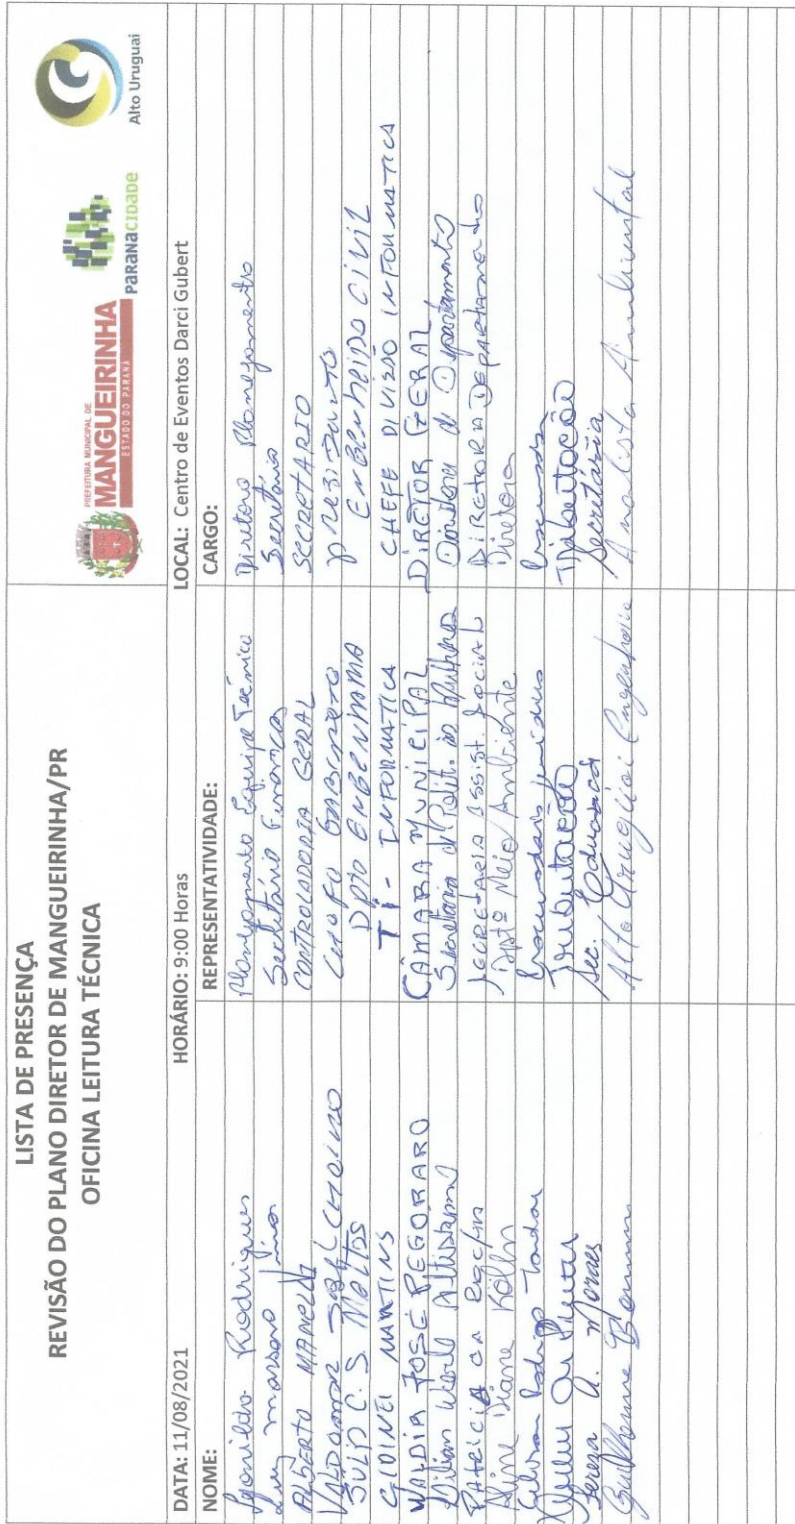 LISTA DE PRESENÇA
REVISÃO DO PLANO DIRETOR DE MANGUEIRINHA/PR
OFICINA LEITURA TÉCNICA
PREFEITURA MUNICIPAL DE
MANGUEIRINHA
ESTADO DO PARANÁ
PARANACIDADE
Alto Uruguai
DATA: 11/08/2021 HORÁRIO: 9:00 Horas LOCAL: Centro de Eventos Darci Gubert
NOME: REPRESENTATIVIDADE: CARGO:
Rodrigues Planejamento Equipe Técnica Diretora Planejamento
Luiz Secretário Finanças Secretário
ALBERTO CONTROLADORIA GERAL SECRETARIO
VALDOMIR Chefe GABINETE
JULIO C. S. MATTOS Dpto ENGENHARIA ENGENHEIRO CIVIL
GIDINEI MARTINS TI - INFORMATICA CHEFE DIVISÃO INFORMATICA
WALDIR JOSÉ PEGORARO CÂMARA MUNICIPAL DIRETOR GERAL
Secretaria de Polit. as Mulheres Diretora de Departamento
PATRICIA SECRETARIA ASSIST. SOCIAL DIRETORA DEPARTAMENTO
Aline Diane Kölln Dptº Meio Ambiente Diretora
Rodrigo Procuradoria jurídica Procurador
Tributação Tributação
Tereza A. Morais Sec. Educação Secretária
Guilherme Alto Uruguai Engenharia Analista Ambiental